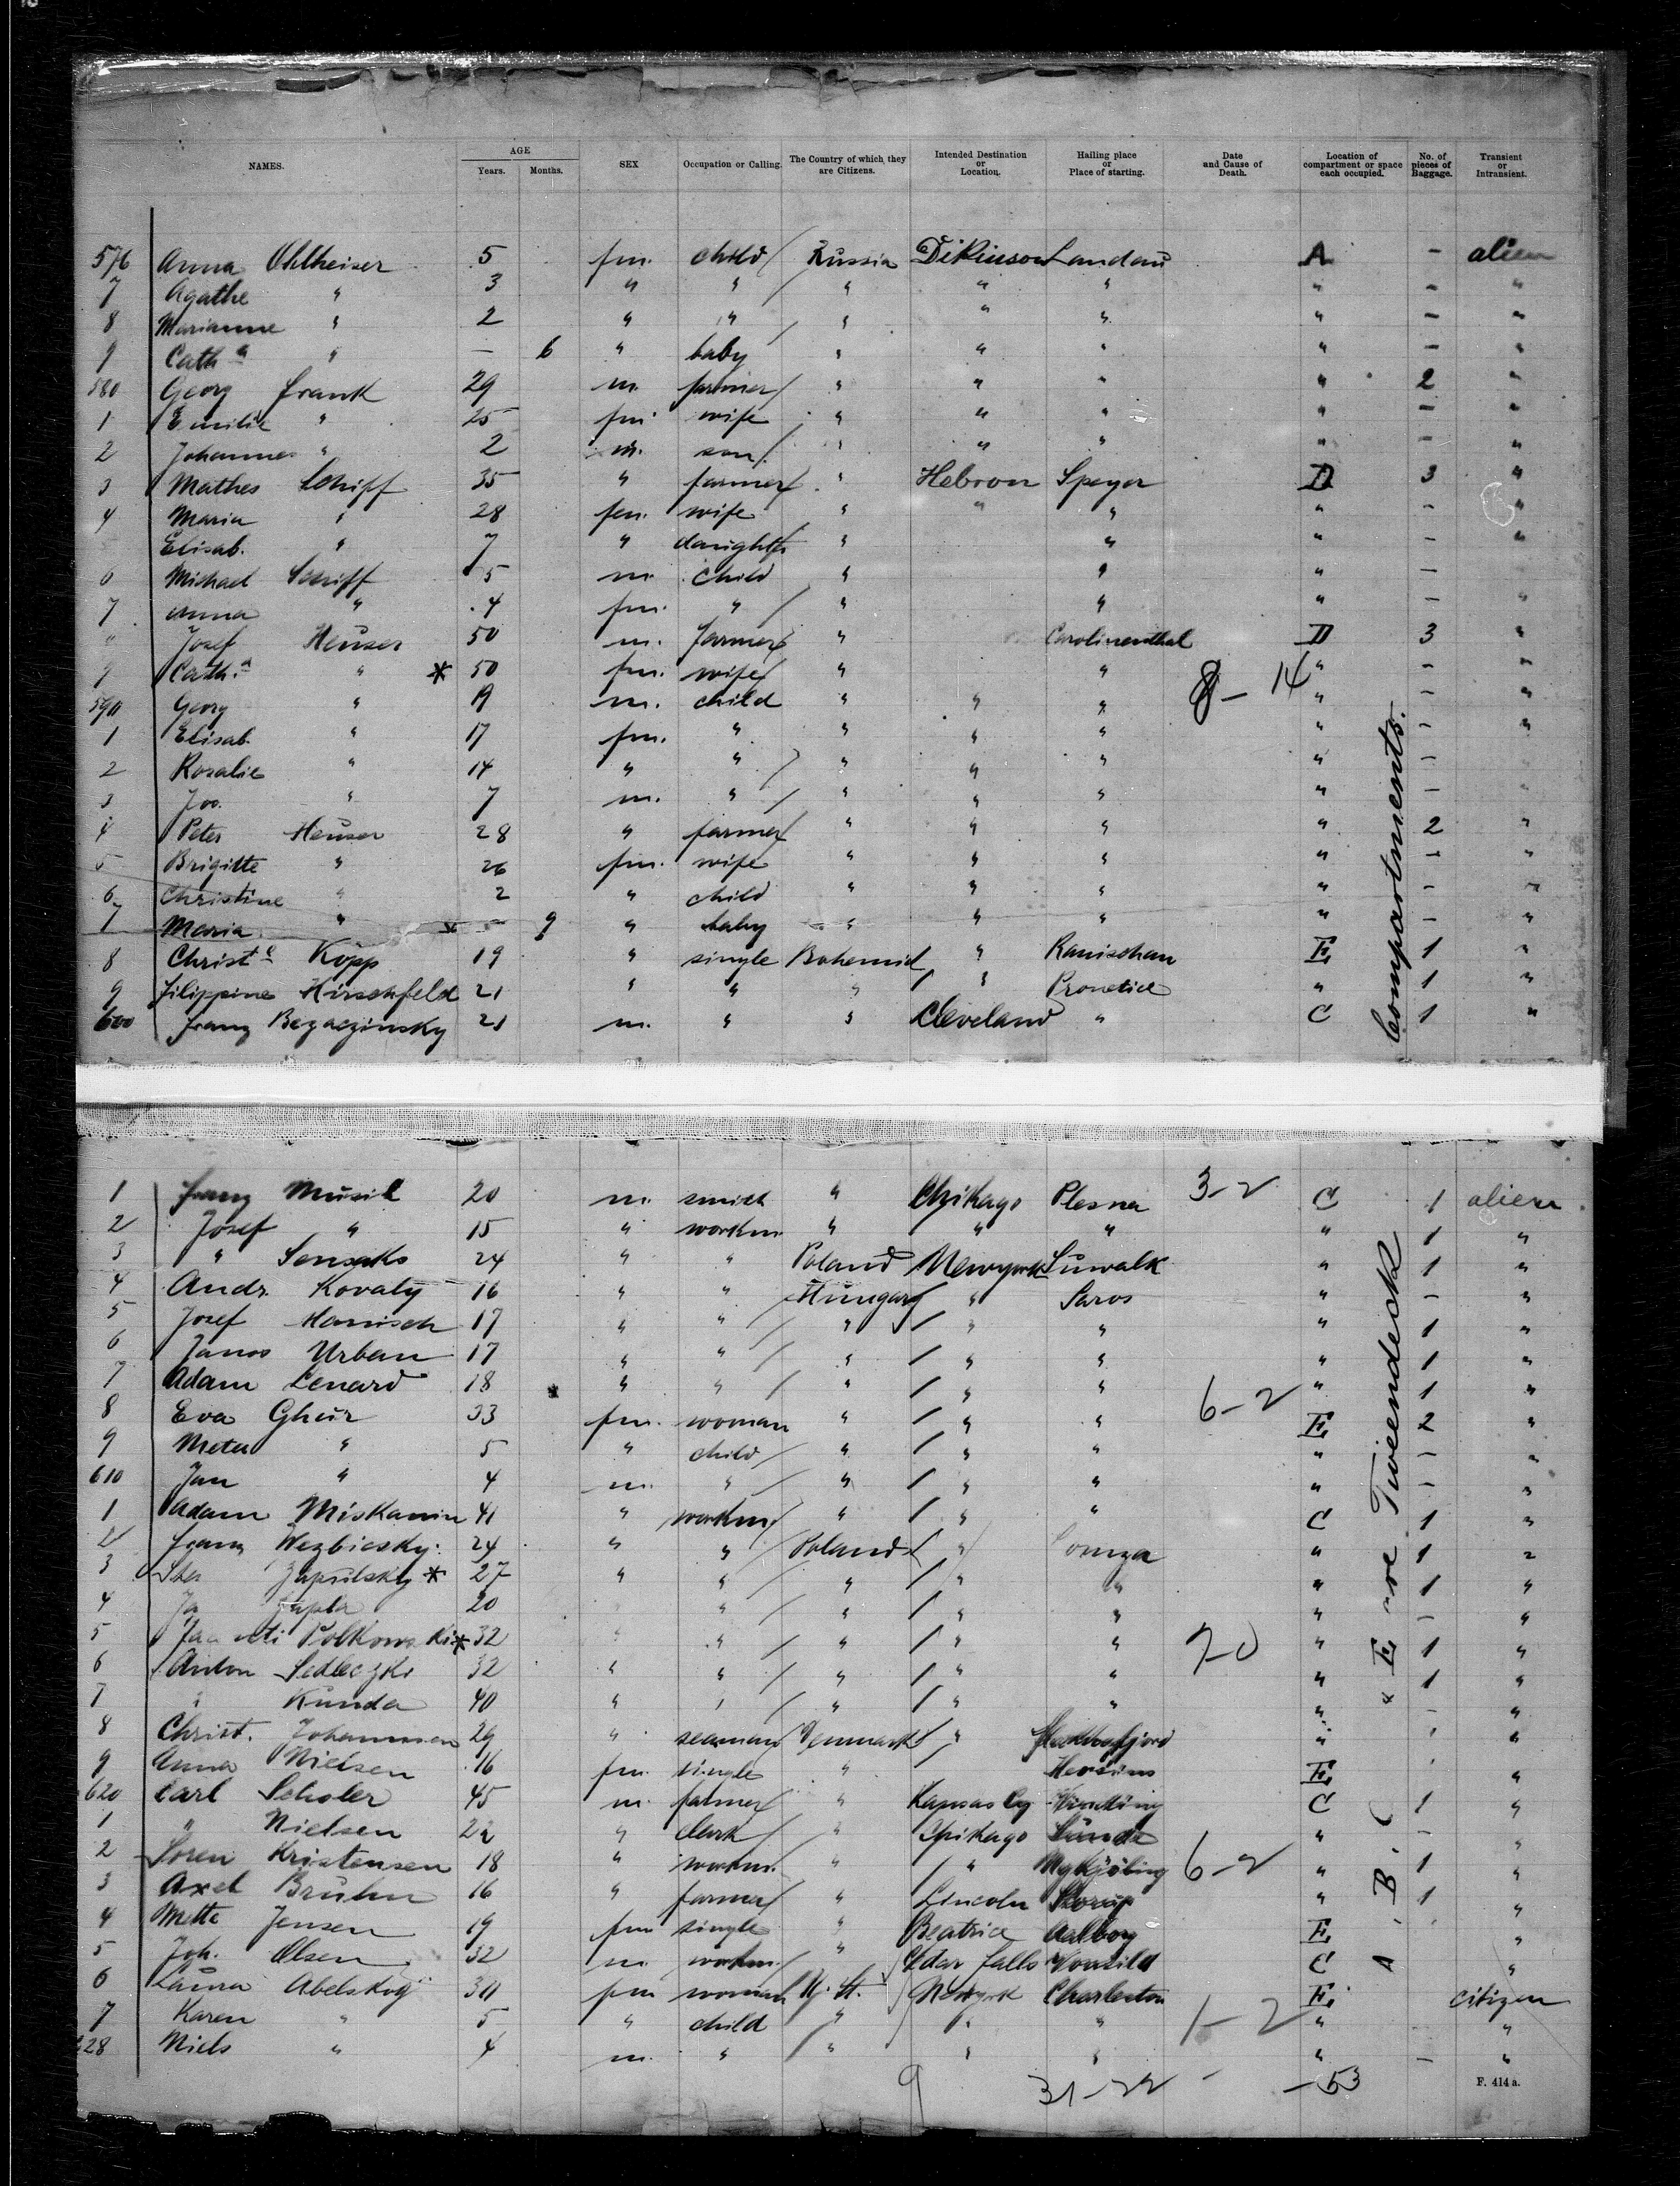 NAMES. AGE Years. Months. SEX Occupation or Calling. The Country of which they are Citizens. Intended Destination or Location. Hailing place or Place of starting. Date and Cause of Death. Location of compartment or space each occupied. No. of pieces of Baggage. Transient or Intransient.
576 Anna Ohlheiser 5 fm. child Russia Dikinson Landau A - alien
7 Agathe " 3 " " " " " " - "
8 Marianne " 2 " " " " " " - "
9 Cath a " - 6 " baby " " " " - "
580 Georg Frank 29 m. farmer " " " " 2 "
1 Emilie " 25 fm wife " " " " - "
2 Johannes " 2 m. son " " " " - "
3 Mathes Schiff 35 " farmer " Hebron Speyer D 3 "
4 Maria " 28 fm. wife " " " " - "
Elisab. " 7 " daught " " " - "
6 Michael Schiff 5 m. child " " " -
7 Anna " 4 fm. " " " " - "
Josef Heuser 50 m. farmer " Carolinenthal D 3 "
9 Cath. a " * 50 fm. wife " " " - "
8-14
590 Georg " 19 m. child " " " " - "
1 Elisab. " 17 fm. " " " " " - "
2 Rosalie " 14 " " " " " " -
3 Jos. " 7 m. " " " " " - "
4 Peter Heuser 28 " farmer " " " " 2 "
5 Brigitte " 26 fm. wife " " " " - "
6 Christine " 2 " child " " " " - "
7 Maria " - 9 " baby " " " " - "
8 Christ e Köpp 19 " single Bohemia " Ranischau E 1 "
9 Filippine Hirschfeld 21 " " " " " 1 "
600 Franz 21 m. " " Cleveland " C 1 "
Compartments.
1 Franz Musil 20 m. smith " Chikago Plesna 3-2 C 1 alien
2 Josef " 15 " workm. " " " " 1 "
3 " 24 " " Poland Newyork Suwalk " 1 "
4 Andr. Kovaly 16 " " Hungary " Saros " - "
5 Josef Hanisch 17 " " " " " " 1 "
6 Janos Urban 17 " " " " " " 1 "
7 Adam Lenard 18 " " " " " " 1 "
6-2
8 Eva 33 fm. woman " " " E 2 "
9 " 5 " child " " " " - "
610 Jan " 4 m. " " " " " - "
1 Adam Miskanin 41 " workm " " " C 1 "
2 Franz 24 " " Poland " Lomza " 1 "
3 * 27 " " " " " " 1 "
4 20 " " " " " - "
5 Polkowski * 32 " " " " " 1 "
6 Anton Sedleczki 32 " " " " " " 1 "
7 " Kunda 40 " " " " " " - "
8 Christ. Johannsen 29 " seaman Denmark " " "
9 Anna Nielsen 16 fm. single " E "
620 Carl Scholer 45 m. farmer " Kansas Cy C 1 "
1 " Nielsen 22 " clerk " Chikago " - "
2 Soren Kristensen 18 " workm. " " Nykjöbing 6-2 " 1 "
3 Axel Bruhn 16 " farmer " Lincoln " 1 "
4 Mette Jensen 19 fm single " Beatrice Aalborg E "
5 Joh. Olsen 32 m. workm. " Cedar falls C "
6 Laura Abelskog 30 fm woman Newyork Charleston E citizen
7 Karen " 5 " child " " " 1-2 " "
628 Niels " 4 m. " " " " " - "
9 31-22 - 53
F. 414 a.